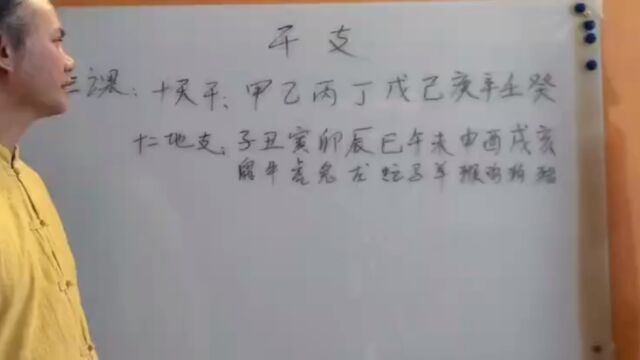 干支
三课：十天干：甲乙丙丁戊己亥辛壬癸
十二地支：子丑寅卯辰巳午未申酉戌亥
鼠牛虎兔龙蛇马羊猴鸡狗猪